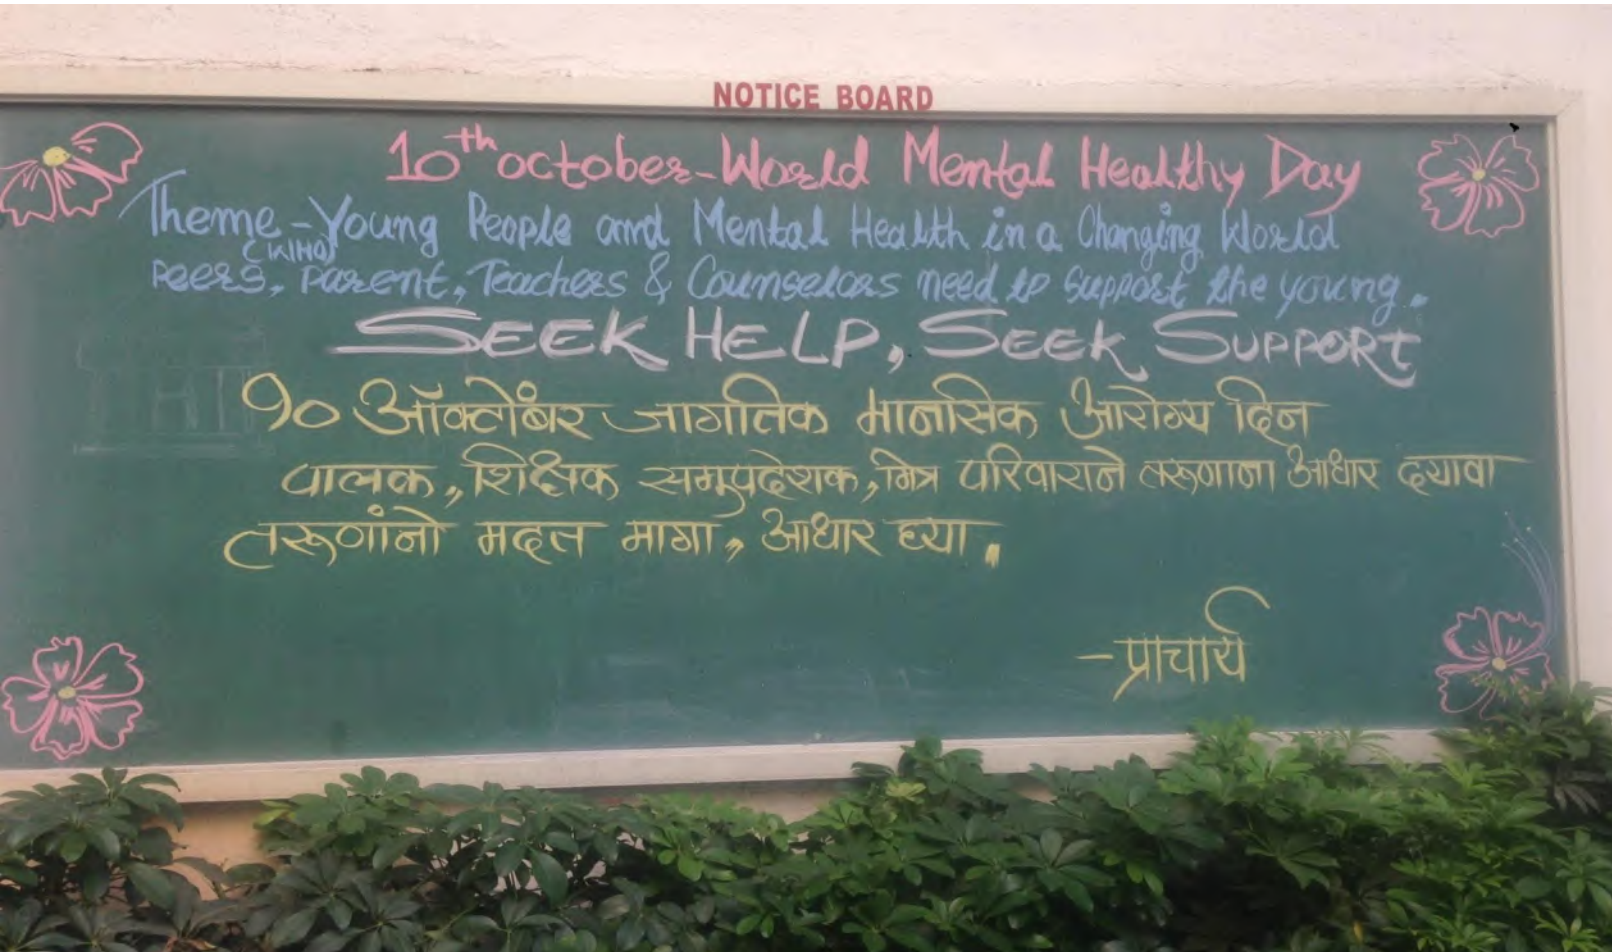 NOTICE BOARD
10th october-World Mental Healthy Day
Theme-Young People and Mental Health in a Changing World
(WHO)
Peers, Parent, Teachers & Counselors need to support the young.
SEEK HELP, SEEK SUPPORT
१० ऑक्टोंबर जागतिक मानसिक आरोग्य दिन
पालक, शिक्षक समुपदेशक, मित्र परिवाराने तरूणाना आधार दयावा
तरूणांनो मदत मागा, आधार घ्या.
-प्राचार्य